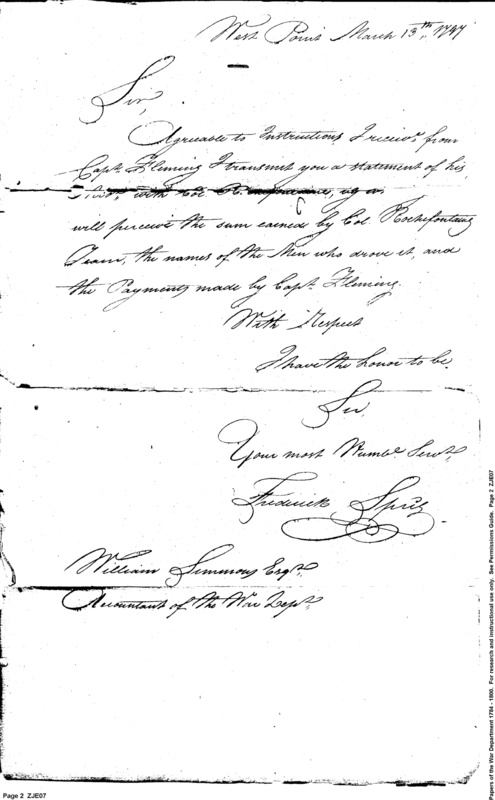 West Point March 13th, 1797
Sir,
Agreeable to Instructions I reciev'd from
Capt. Fleming I transmit you a statement of his
with Col.
will perceive the sum earned by Col. Rochefontains
Team, the names of the Men who drove it, and
the Payments made by Capt. Fleming.
With Respect
I have the honor to be.
Sir.
Your most Humbl. Servt.
Frederick
William Simmons Esqr.
Accountant of the War Dept.
Page 2 ZJE07
Papers of the War Department 1784 - 1800. For research and instructional use only. See Permissions Guide. Page 2 ZJE07